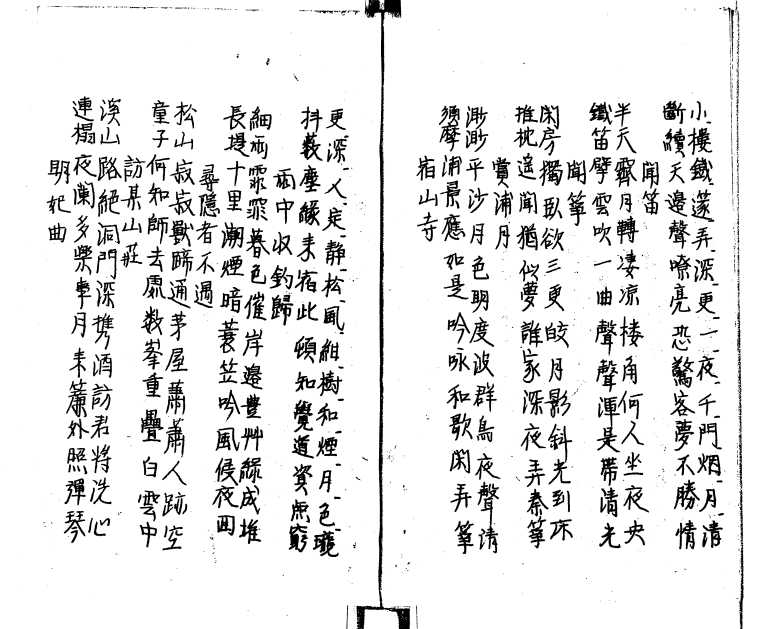 小樓鐵篴弄深更一夜千門烟月清
斷續天邊聲嘹亮恐驚客夢不勝情
聞笛
半天霽月轉凄凉楼角何人坐夜央
鐵笛擘雲吹一曲聲聲渾是帶清光
聞箏
閑房獨臥欲三更皎月影斜光到床
推枕遥聞猶似夢誰家深夜弄秦箏
賞浦月
渺渺平沙月色明度波群鳥夜聲清
須摩浦景應如是吟咏和歌閑弄箏
宿山寺
更深人定静松風紺樹和煙月色瓏
抖藪塵緣来宿此頓知覺道資無窮
雨中收釣歸
細雨霏霏暮色催岸邊豊艸綠成堆
長堤十里潮煙暗蓑笠吟風侵夜回
尋隱者不遇
松山寂寂獸蹄通茅屋蕭蕭人跡空
童子何知師去處数峯重疊白雲中
訪某山莊
溪山路絕洞門深携酒訪君将洗心
連榻夜闌多樂事月来簾外照彈琴
明妃曲